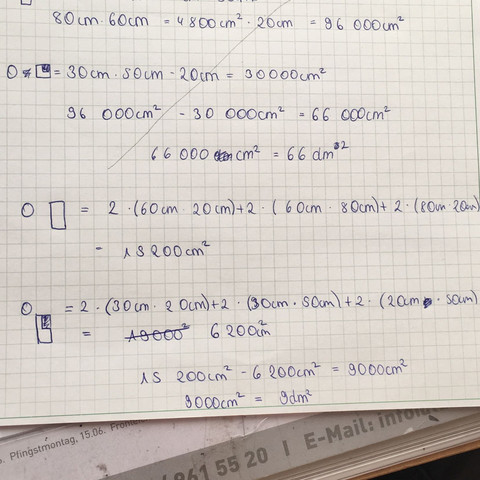 80cm · 60cm = 4800cm² · 20cm = 96 000cm²
O = 30cm · 50cm - 20cm = 30000cm²
96 000cm² - 30 000cm² = 66 000cm²
66 000 cm² = 66 dm²
O = 2 · (60cm · 20cm) + 2 · (60cm · 80cm) + 2 · (80cm · 20cm)
= 15200cm²
O = 2 · (30cm · 20cm) + 2 · (30cm · 50cm) + 2 · (20cm · 50cm)
= 19000² 6200cm²
15 200cm² - 6200cm² = 9000cm²
9000cm² = 9dm²
Pfingstmontag, 15.06.
961 55 20 | E-Mail: